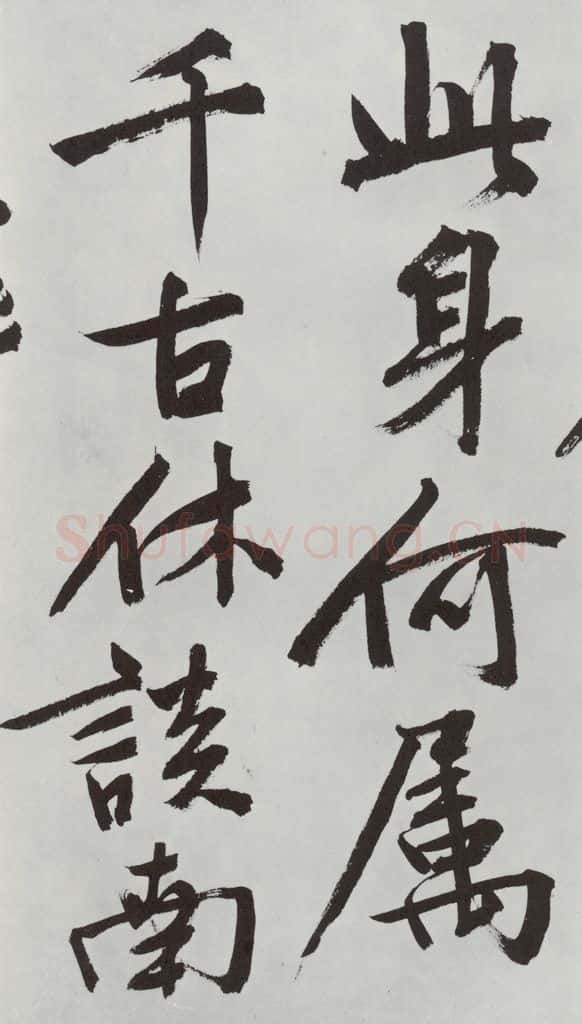 此身何属
千古休談南
Shufawang.CN